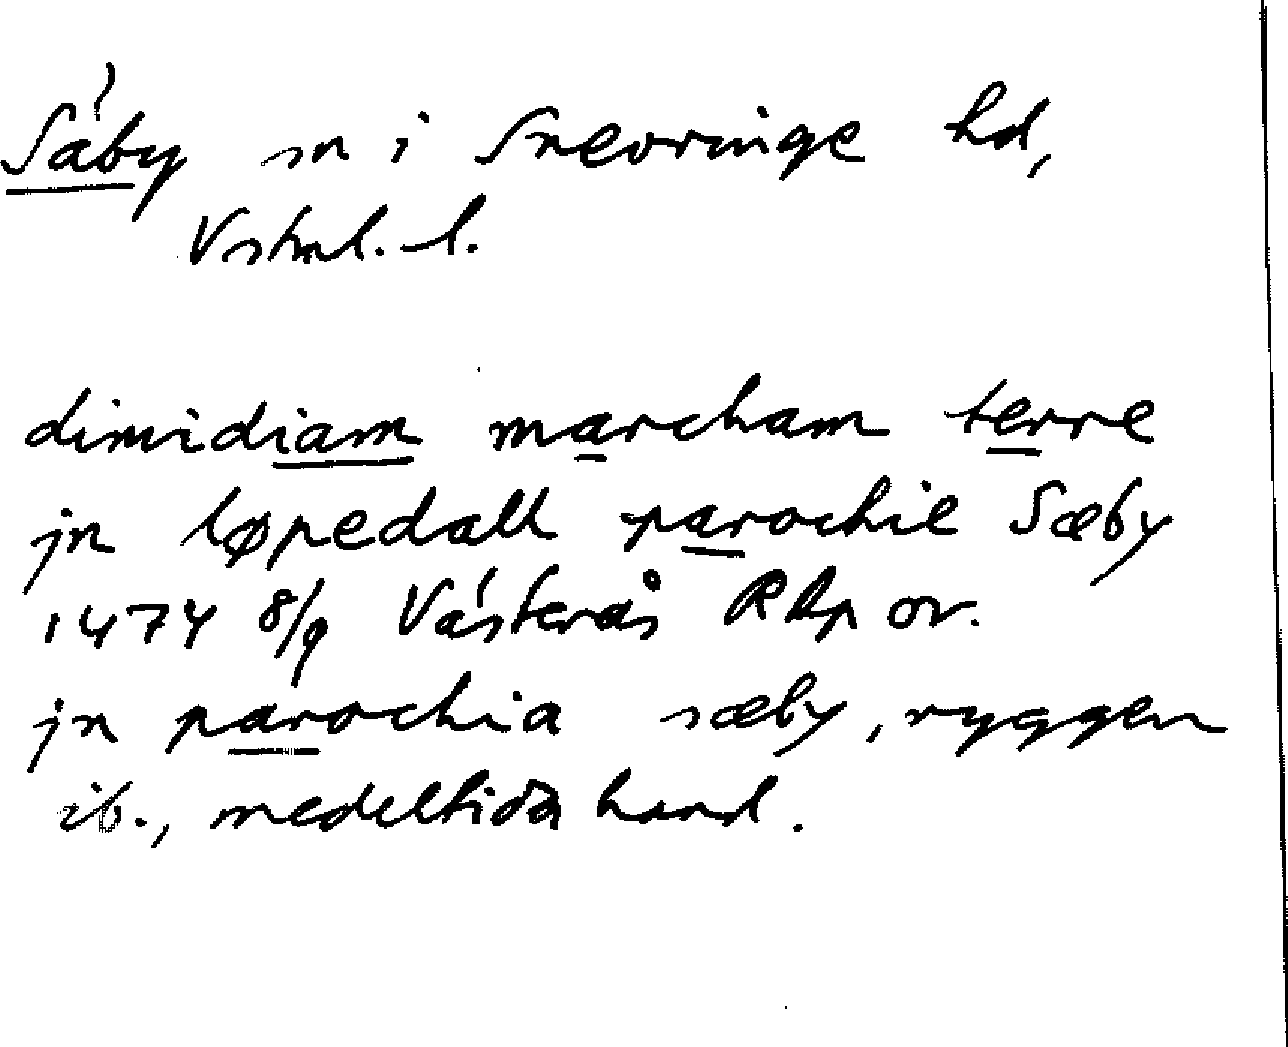 Säby sn i Snevringe hd,
Vstml. l.
dimidiam marcham terre
jn løpedall parochie Sæby
1474 8/9 Västerås RAp or.
jn parochia sæby, ryggen
ib., medeltida hand.